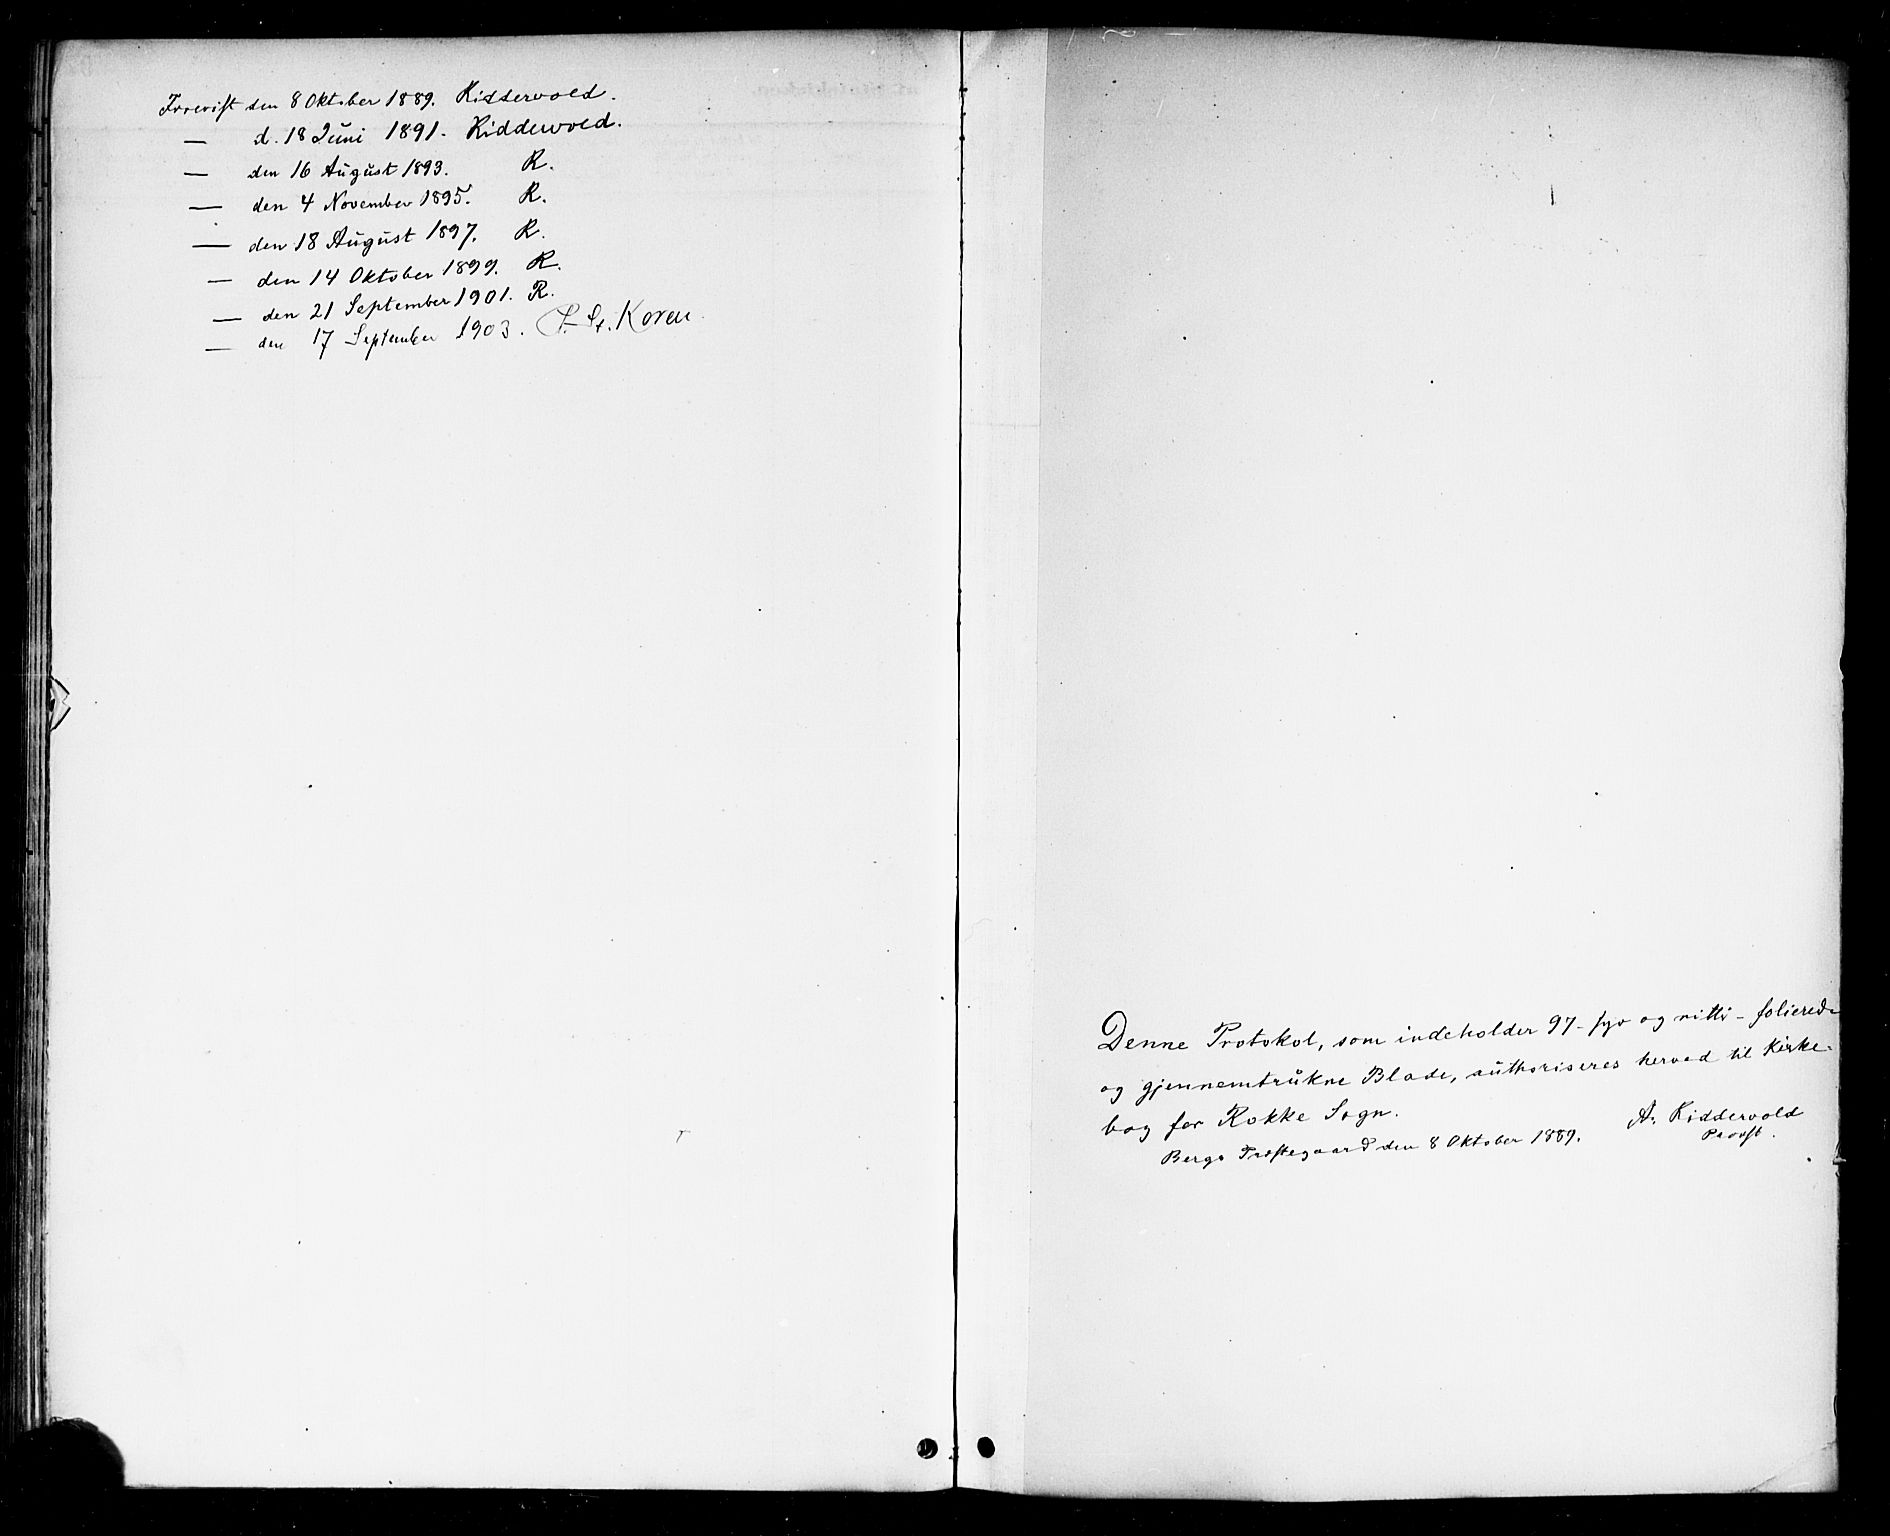 Forevist den 8 Oktober 1889. Riddervold.
— d. 18 Juni 1891. Riddervold.
— den 16 August 1893. R.
— den 4 November 1895. R.
— den 18 August 1897. R.
— den 14 Oktober 1899. R.
— den 21 September 1901. R.
— den 17 September 1903. Koren
Denne Protokol, som indeholder 97 - syv og nitti - folierede
og gjennemtrukne Blade, authoriseres herved til Kirke-
bog for Rokke Sogn.
Bergs Præstegaard den 8 Oktober 1889. A. Riddervold
Provst.